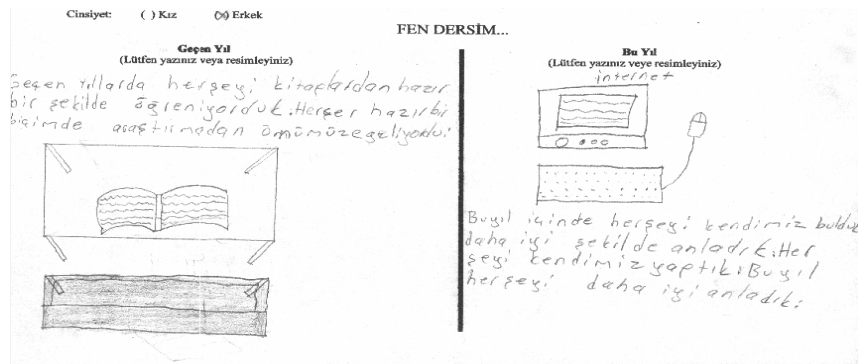 Cinsiyet: ( ) Kız (x) Erkek
FEN DERSİM...
Geçen Yıl
(Lütfen yazınız veya resimleyiniz)
Geçen yıllarda herşeyi kitaplardan hazır
bir şekilde öğreniyorduk. Herşey hazır bir
biçimde araştırmadan önümüze geliyordu.
Bu Yıl
(Lütfen yazınız ve resimleyiniz)
internet
Bu yıl içinde herşeyi kendimiz bulduk
daha iyi şekilde anladık. Her
şeyi kendimiz yaptık. Bu yıl
herşeyi daha iyi anladık.